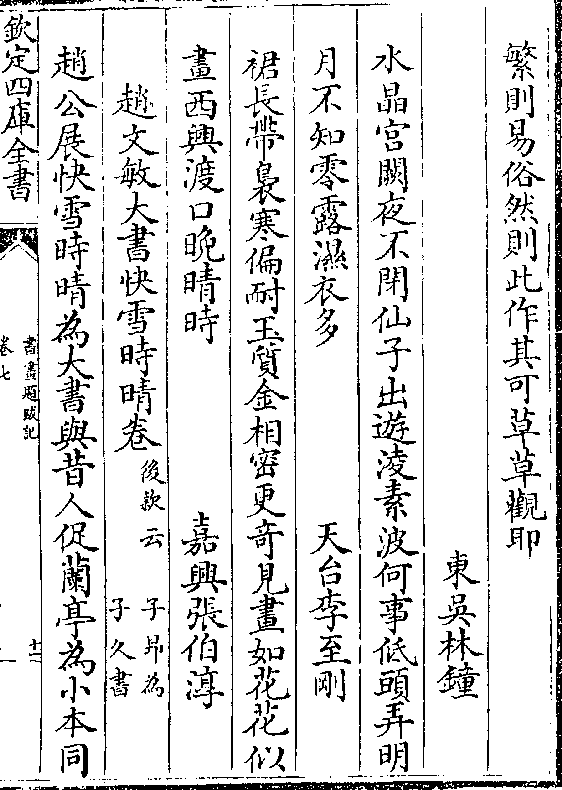 繁則易俗然則此作其可草草觀耶
東吳林鐘
水晶宮闕夜不閉仙子出遊淩素波何事低頭弄明
月不知零露濕衣多
天台李至剛
裙長帶裊寒偏耐玉質金相密更奇見畫如花花似
畫西興渡口晚晴時
嘉興張伯淳
趙文敏大書快雪時晴卷
後款云
子昻為
子久書
趙公展快雪時晴為大書與昔人促蘭亭為小本同
欽定四庫全書
書畫題跋記
卷七
十二